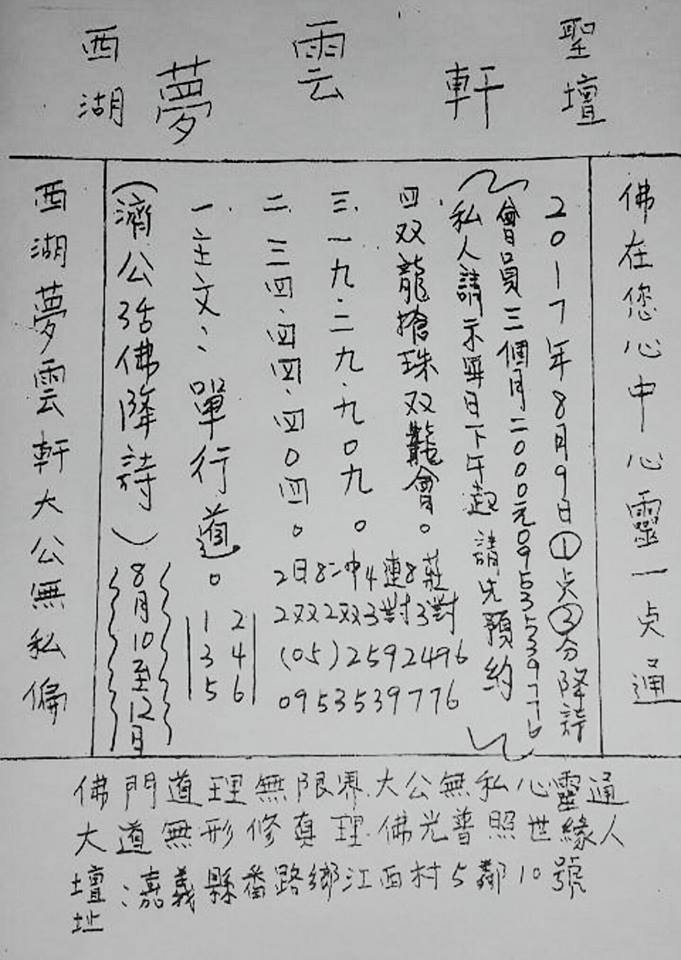 西湖夢雲軒聖壇
西湖夢雲軒大公無私偏
(濟公活佛降詩)8月10至12日
一.主文:單行道。
1 2
3 4
5 6
二.三四.四四.四0四。
三.一九.二九.九0九。
四双龍搶珠双龍會。
2日8二冲4連8莊
2双2双3對3對
(05)2592496
0953539776
私人請示每日下午起請先預約
會員三個月2000元0953539776
2017年8月9日①点③分降詩
佛在您心中心靈一点通
佛門道理無限界.大公無私心靈通
大道無形修真理.佛光普照世緣人
壇址:嘉義縣番路鄉江西村5鄰10號